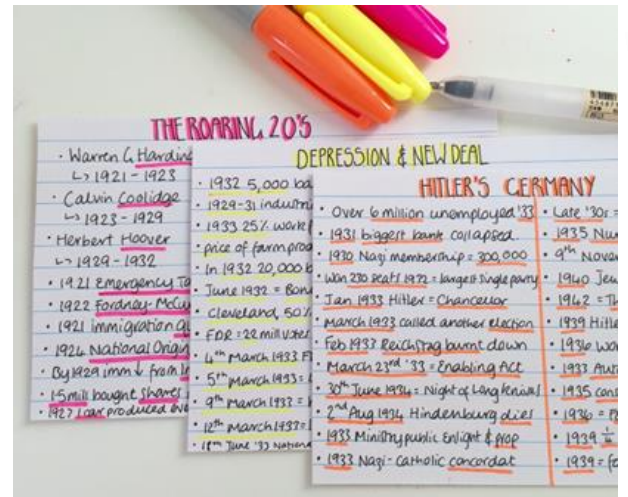 THE ROARING 20'S
· Warren G Harding
↳ 1921 - 1923
· Calvin Coolidge
↳ 1923 - 1929
· Herbert Hoover
↳ 1929 - 1932
· 1921 Emergency Ta
· 1922 Fordney-McCu
· 1921 immigration qu
· 1924 National Origin
· By 1929 imm ↓ from
· 1.5mill bought shares
produced
DEPRESSION & NEW DEAL
· 1932 5,000 ba
· 1929-31 industri
· 1933 25% work
· price of farm prod
· In 1932 20,000 b
· June 1932 = Bon
· Cleveland, 50%
· FDR = 22 mill votes
· 4th March 1933 F
· 5th March 1933 =
· 9th March 1933 =
· 12th March 1933 =
June '33 Nation
HITLER'S GERMANY
· Over 6 million unemployed '33
· 1931 biggest bank collapsed.
· 1930 Nazi membership = 300,000
· Won 230 seats = largest single party
· Jan 1933 Hitler = Chancellor
· March 1933 called another election
· Feb 1933 Reichstag burnt down
· March 23rd '33 = Enabling Act
· 30th June 1934 = Night of Long Knives
· 2nd Aug 1934 Hindenburg dies
· 1933 Ministry public Enlight & prop
· 1933 Nazi-Catholic concordat
· Late '30s =
· 1935 Nu
· 9th Nove
· 1940 Jew
· 1942 = Th
· 1939 Hitle
· 1936 Wo
· 1933 Aut
· 1935 cons
· 1936 =
· 1939
· 1939 = fe